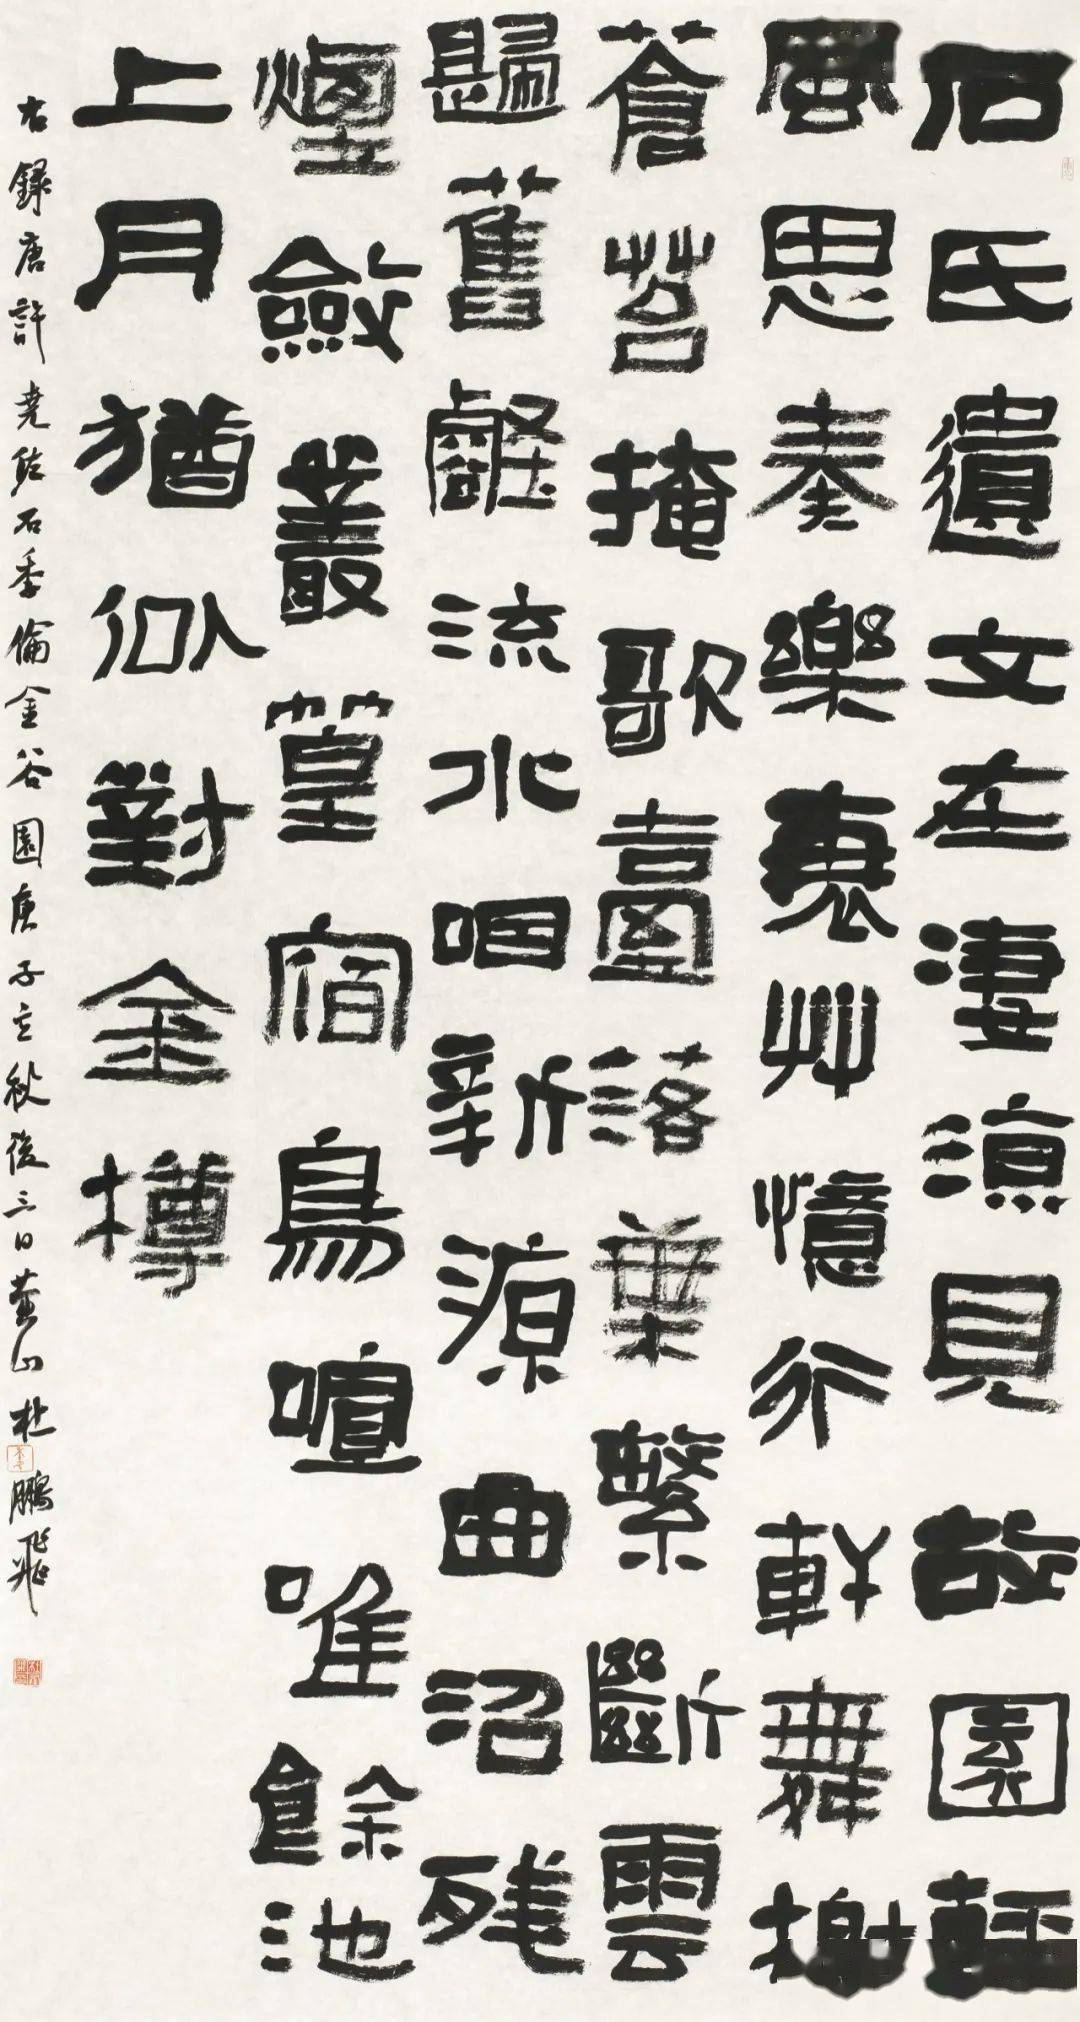 石氏遺文在淒涼見故園輕
風思奏樂衰艸憶行軒舞榭
蒼苔掩歌臺落葉繁斷雲
歸舊壑流水咽新源曲沼殘
煙斂叢篁宿鳥喧唯餘池
上月猶似對金樽
右錄唐許堯佐石季倫金谷園庚子立秋後三日黃山杜鵬飛